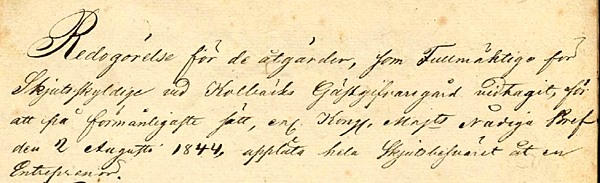 Redogörelse för de åtgärder, som Fullmäktige för
Skjutsskyldige vid Kolbäcks Gästgifvaregård vidtagit, för
att på förmånligaste sätt, enl. Kongl. Majts Nådiga Bref
den 2 Augusti 1844, upplåta hela Skjutsbesväret åt en
Entreprenör.